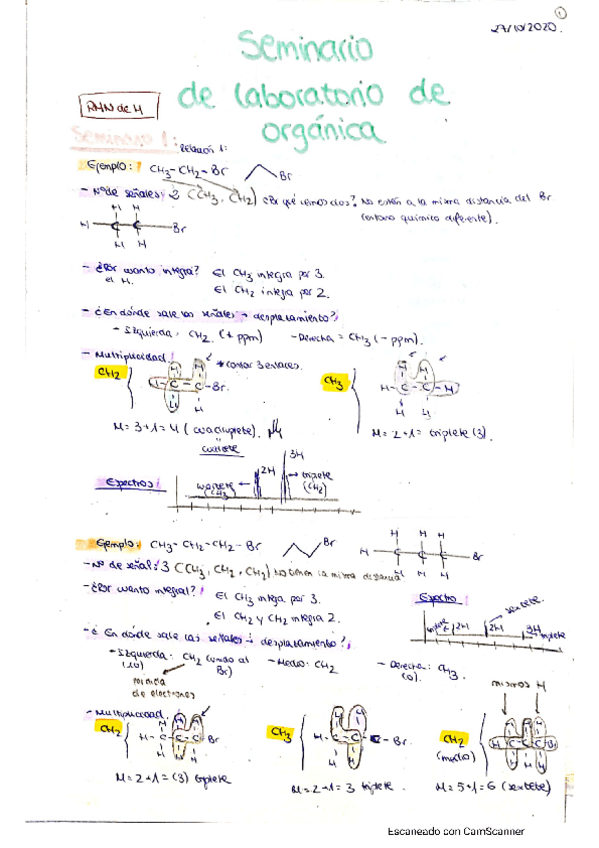 1
27/10/2020.
Seminario
de laboratorio de
orgánica
RMN de H
Seminario 1:
Relación 1:
Ejemplo: CH3-CH2-Br Br
- Nº de señales: 2 (CH3, CH2) ¿Por qué vemos dos? No están a la misma distancia del Br
(entorno químico diferente).
H H
H C C Br
H H
- ¿Por cuanto integra? El CH3 integra por 3.
el H. El CH2 integra por 2.
- ¿En dónde sale las señales → desplazamiento?
- Izquierda: CH2 (+ ppm) - Derecha = CH3 (- ppm).
- Multiplicidad: contar 3 enlaces.
CH2 H H CH3 H H
H-C-C-Br. H-C-C-H
H H H H
M = 3+1 = 4 (cuadruplete). M = 2+1 = triplete (3).
cuartete
3H
2H triplete
Espectros: (CH2)
(CH3)
Ejemplo: CH3-CH2-CH2-Br Br
H H H
H C C C Br
H H H
- Nº de señal: 3 (CH3, CH2, CH2) no tienen la misma distancia
- ¿Por cuanto integral? El CH3 integra por 3. Espectro:
El CH2 y CH2 integra 2. sextete.
2H 2H 3H triplete
- ¿En dónde sale las señales → desplazamiento?
- Izquierda: CH2 (unido al Br) - Medio: CH2 - Derecha: CH3
(0).
de electrones
mismos H
- Multiplicidad.
CH2 H-C-C-C Br CH3 H-C-C-C-Br. CH2 H C C C Br
(medio)
M = 2+1 = (3) triplete M = 2+1 = 3 triplete. M = 5+1 = 6 (sextete)
Escaneado con CamScanner